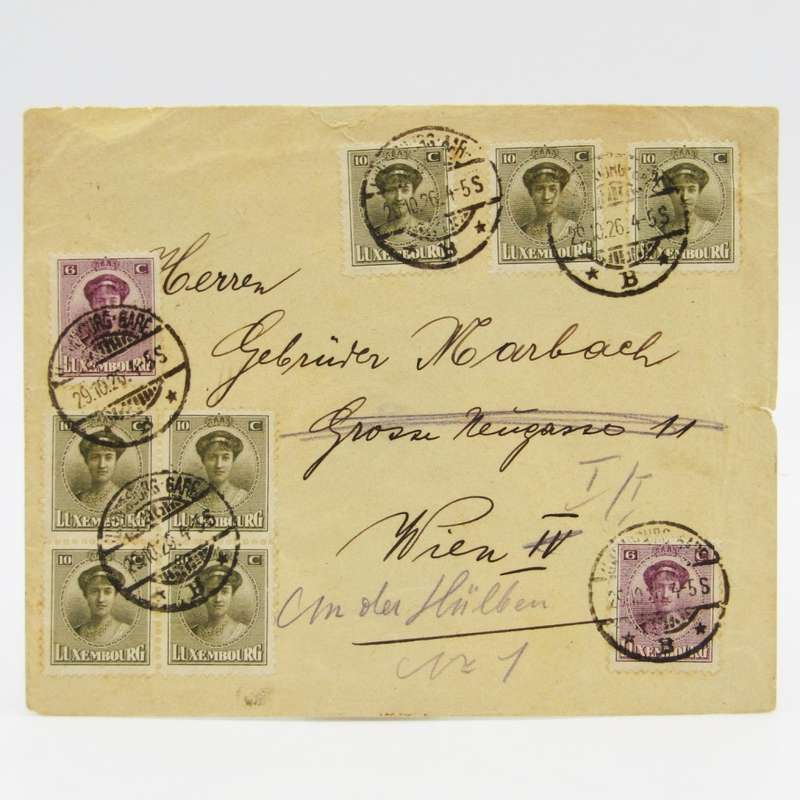 10 C
LUXEMBOURG
10 C
LUXEMBOURG
10 C
LUXEMBOURG
29.10.26. 4-5 S
B
29.10.26. 4-5 S
B
6 C
LUXEMBOURG
LUXEMBOURG-GARE
29.10.26. 4-5 S
Herren
Gebrüder Marbach
Grosse Neugasse 11
Wien IV
I/I
An der Hülben
Nr 1
10 C
LUXEMBOURG
10 C
LUXEMBOURG
10 C
LUXEMBOURG
10 C
LUXEMBOURG
LUXEMBOURG-GARE
29.10.26. 4-5 S
B
6 C
LUXEMBOURG
LUXEMBOURG-GARE
29.10.26. 4-5 S
B